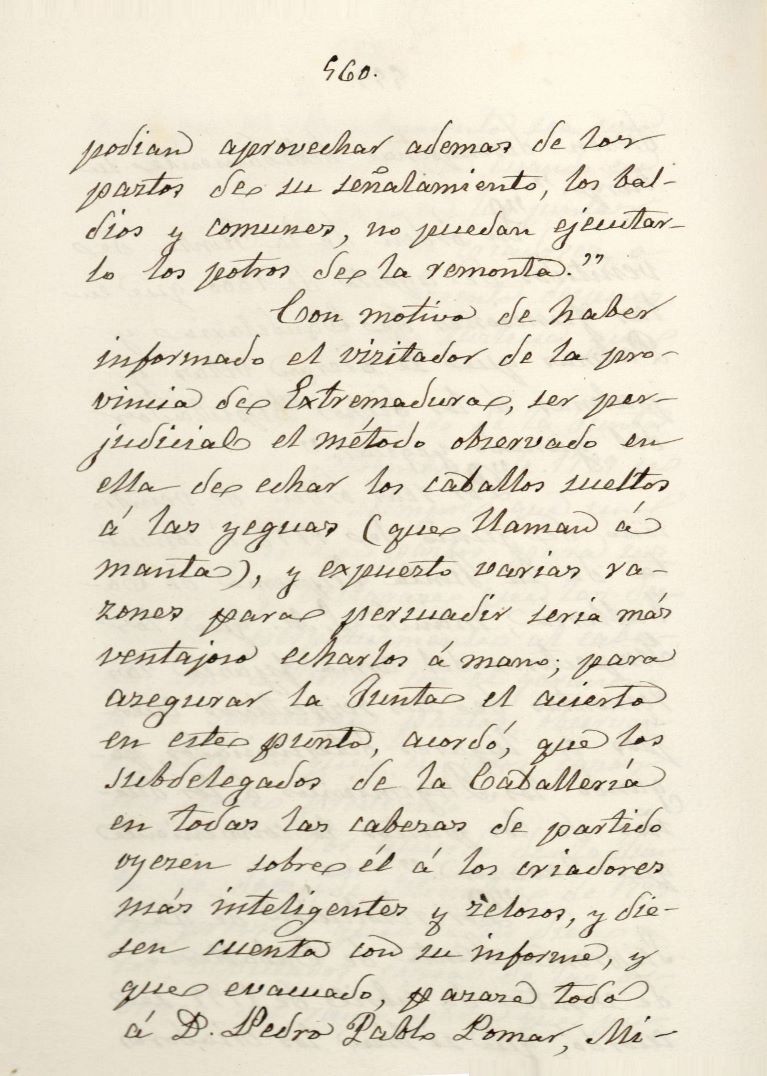 560.
podian aprovechar ademas de los
pastos de su señalamiento, los bal-
dios y comunes, no puedan ejecutar-
lo los potros de la remonta."
Con motivo de haber
informado el visitador de la pro-
vincia de Extremadura, ser per-
judicial el método observado en
ella de echar los caballos sueltos
á las yeguas (que llaman á
manta), y expuesto varias ra-
zones para persuadir seria más
ventajoso echarlos á mano; para
asegurar la Junta el acierto
en este punto, acordó, que los
subdelegados de la Caballería
en todas las cabezas de partido
oyesen sobre él á los criadores
más inteligentes y zelosos, y die-
sen cuenta con su informe, y
que evacuado, pasase todo
á D. Pedro Pablo Pomar, Mi-